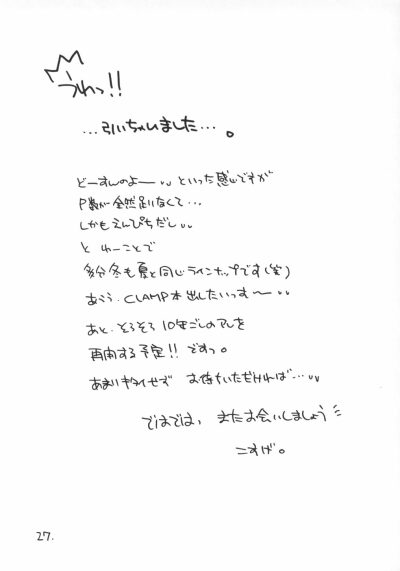 うわっ!!
…引いちゃいました…。
どーすんのよー〰といった感じですが
P数が全然足いなくて…
しかもえんぴちだし〰
と わーことで
多分冬も夏と同じラインナップです(笑)
あぅぅ.CLAMP本出したいっすー〰
あと、そろそろ10年ごしのアレを
再開する予定!!ですっ。
あまいキタイせずお待ちいただければ…〰
ではでは、またお会いしましょう
こすげ。
27.